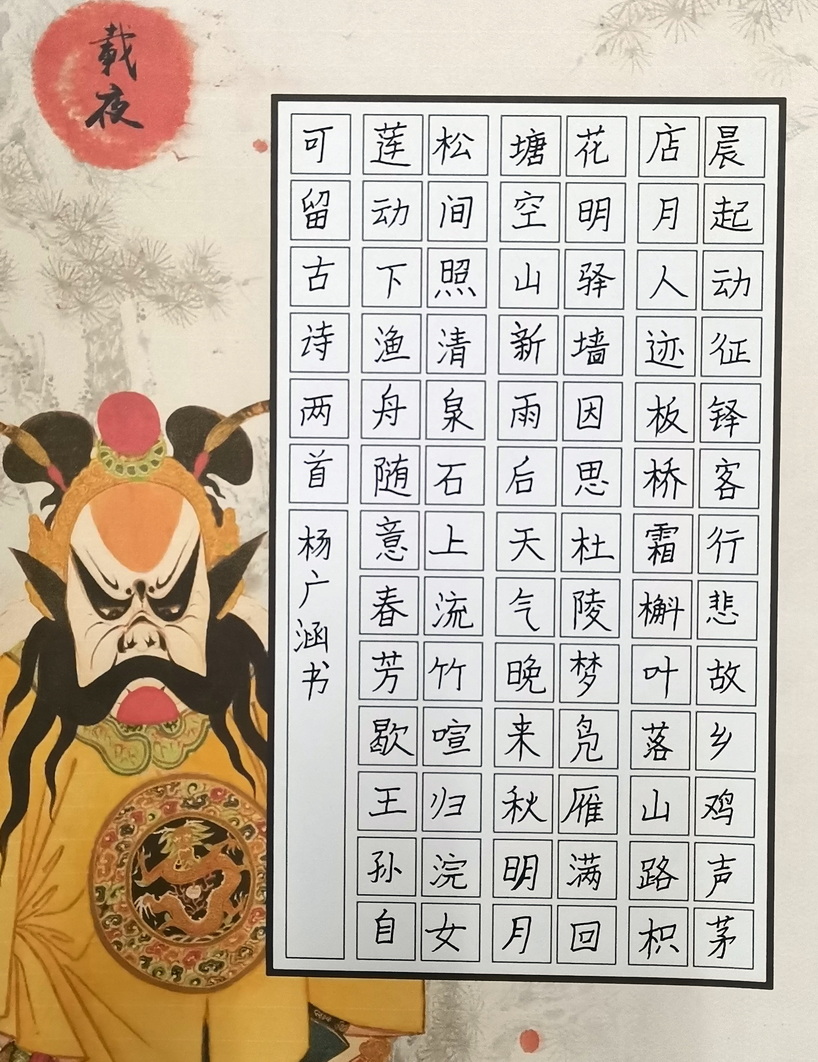 晨起动征铎客行悲故乡鸡声茅
店月人迹板桥霜槲叶落山路枳
花明驿墙因思杜陵梦凫雁满回
塘空山新雨后天气晚来秋明月
松间照清泉石上流竹喧归浣女
莲动下渔舟随意春芳歇王孙自
可留古诗两首
杨广涵书
載夜